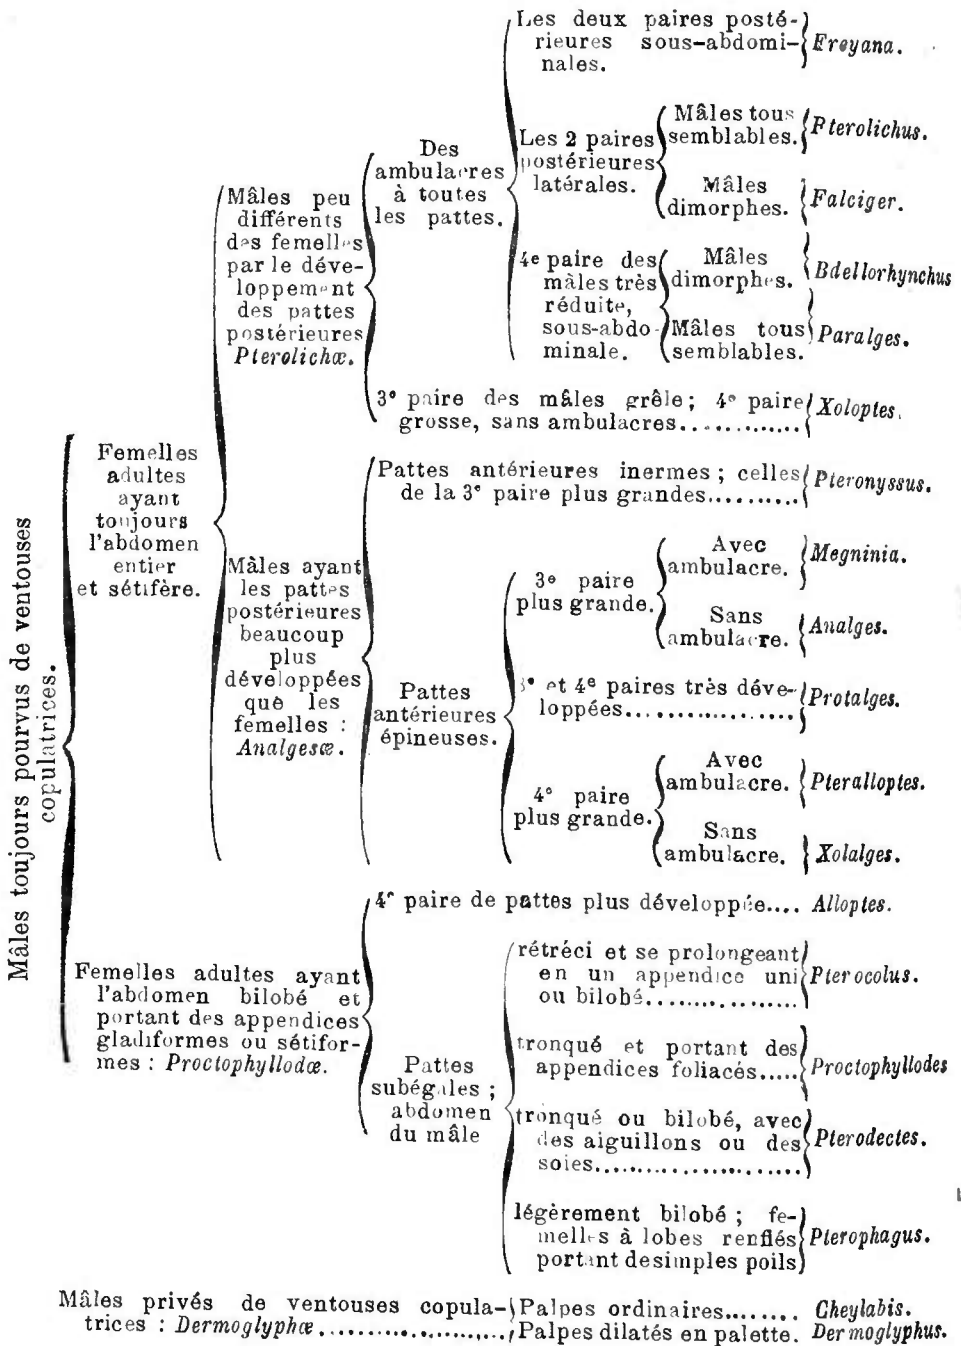 Mâles toujours pourvus de ventouses
copulatrices.
Femelles
adultes
ayant
toujours
l'abdomen
entier
et sétifère.
Mâles peu
différents
des femelles
par le déve-
loppement
des pattes
postérieures
Pterolichæ.
Des
ambulacres
à toutes
les pattes.
Les deux paires posté-
rieures sous-abdomi-
nales.
Freyana.
Les 2 paires
postérieures
latérales.
Mâles tous
semblables.
Pterolichus.
Mâles
dimorphes.
Falciger.
4e paire des
mâles très
réduite,
sous-abdo-
minale.
Mâles
dimorphes.
Bdellorhynchus
Mâles tous
semblables.
Paralges.
3e paire des mâles grêle; 4e paire
grosse, sans ambulacres.............
Xoloptes.
Mâles ayant
les pattes
postérieures
beaucoup
plus
développées
que les
femelles :
Analgesæ.
Pattes antérieures inermes ; celles
de la 3e paire plus grandes..........
Pteronyssus.
Pattes
antérieures
épineuses.
3e paire
plus grande.
Avec
ambulacre.
Megninia.
Sans
ambulacre.
Analges.
3e et 4e paires très déve-
loppées..................
Protalges.
4e paire
plus grande.
Avec
ambulacre.
Pteralloptes.
Sans
ambulacre.
Xolalges.
Femelles adultes ayant
l'abdomen bilobé et
portant des appendices
gladiformes ou sétifor-
mes : Proctophyllodæ.
4e paire de pattes plus développée.... Alloptes.
Pattes
subégales ;
abdomen
du mâle
rétréci et se prolongeant
en un appendice uni
ou bilobé................
Pterocolus.
tronqué et portant des
appendices foliacés.....
Proctophyllodes
tronqué ou bilobé, avec
des aiguillons ou des
soies......................
Pterodectes.
légèrement bilobé ; fe-
melles à lobes renflés
portant desimples poils
Pterophagus.
Mâles privés de ventouses copula-
trices : Dermoglyphæ....................
Palpes ordinaires........ Cheylabis.
Palpes dilatés en palette. Dermoglyphus.